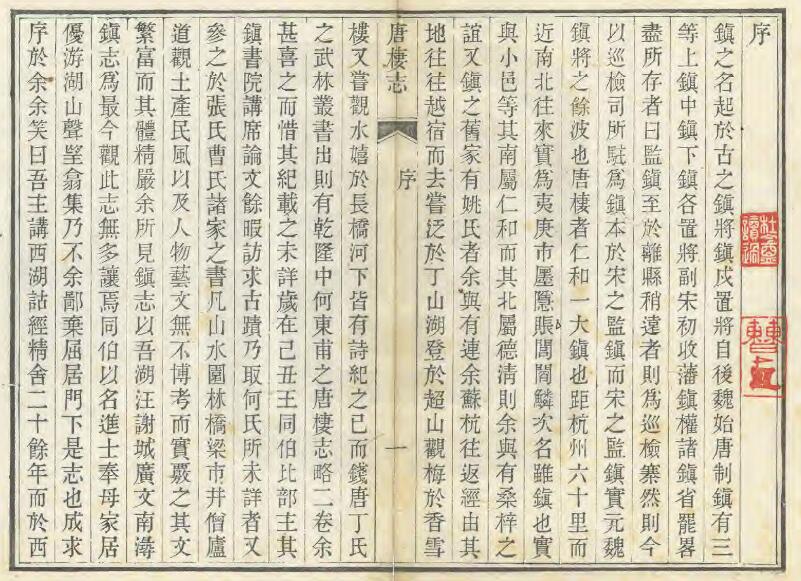 序
鎮之名起於古之鎮將鎮戍置將自後魏始唐制鎮有三
等上鎮中鎮下鎮各置將副宋初收藩鎮權諸鎮省罷畧
盡所存者曰監鎮至於離縣稍遠者則爲巡檢寨然則今
以巡檢司所駐爲鎮本於宋之監鎮而宋之監鎮實元魏
鎮將之餘波也唐棲者仁和一大鎮也距杭州六十里而
近南北往來實爲夷庚市廛隱賑闾閻鱗次名雖鎮也實
與小邑等其南屬仁和而其北屬德清則余與有桑梓之
誼又鎮之舊家有姚氏者余與有連余蘇杭往返經由其
地往往越宿而去嘗泛於丁山湖登於超山觀梅於香雪
唐棲志
序
一
樓又嘗觀水嬉於長橋河下皆有詩紀之已而錢唐丁氏
之武林叢書出則有乾隆中何東甫之唐棲志略二卷余
甚喜之而惜其紀載之未詳歲在己丑王同伯比部主其
鎮書院講席論文餘暇訪求古蹟乃取何氏所未詳者又
參之於張氏曹氏諸家之書凡山水園林橋梁市井僧廬
道觀土產民風以及人物藝文無不博考而實覈之其文
繁富而其體精嚴余所見鎮志以吾湖汪謝城廣文南潯
鎮志爲最今觀此志無多讓焉同伯以名進士奉母家居
優游湖山聲望翕集乃不余鄙棄屈居門下是志也成求
序於余余笑曰吾主講西湖詁經精舍二十餘年而於西